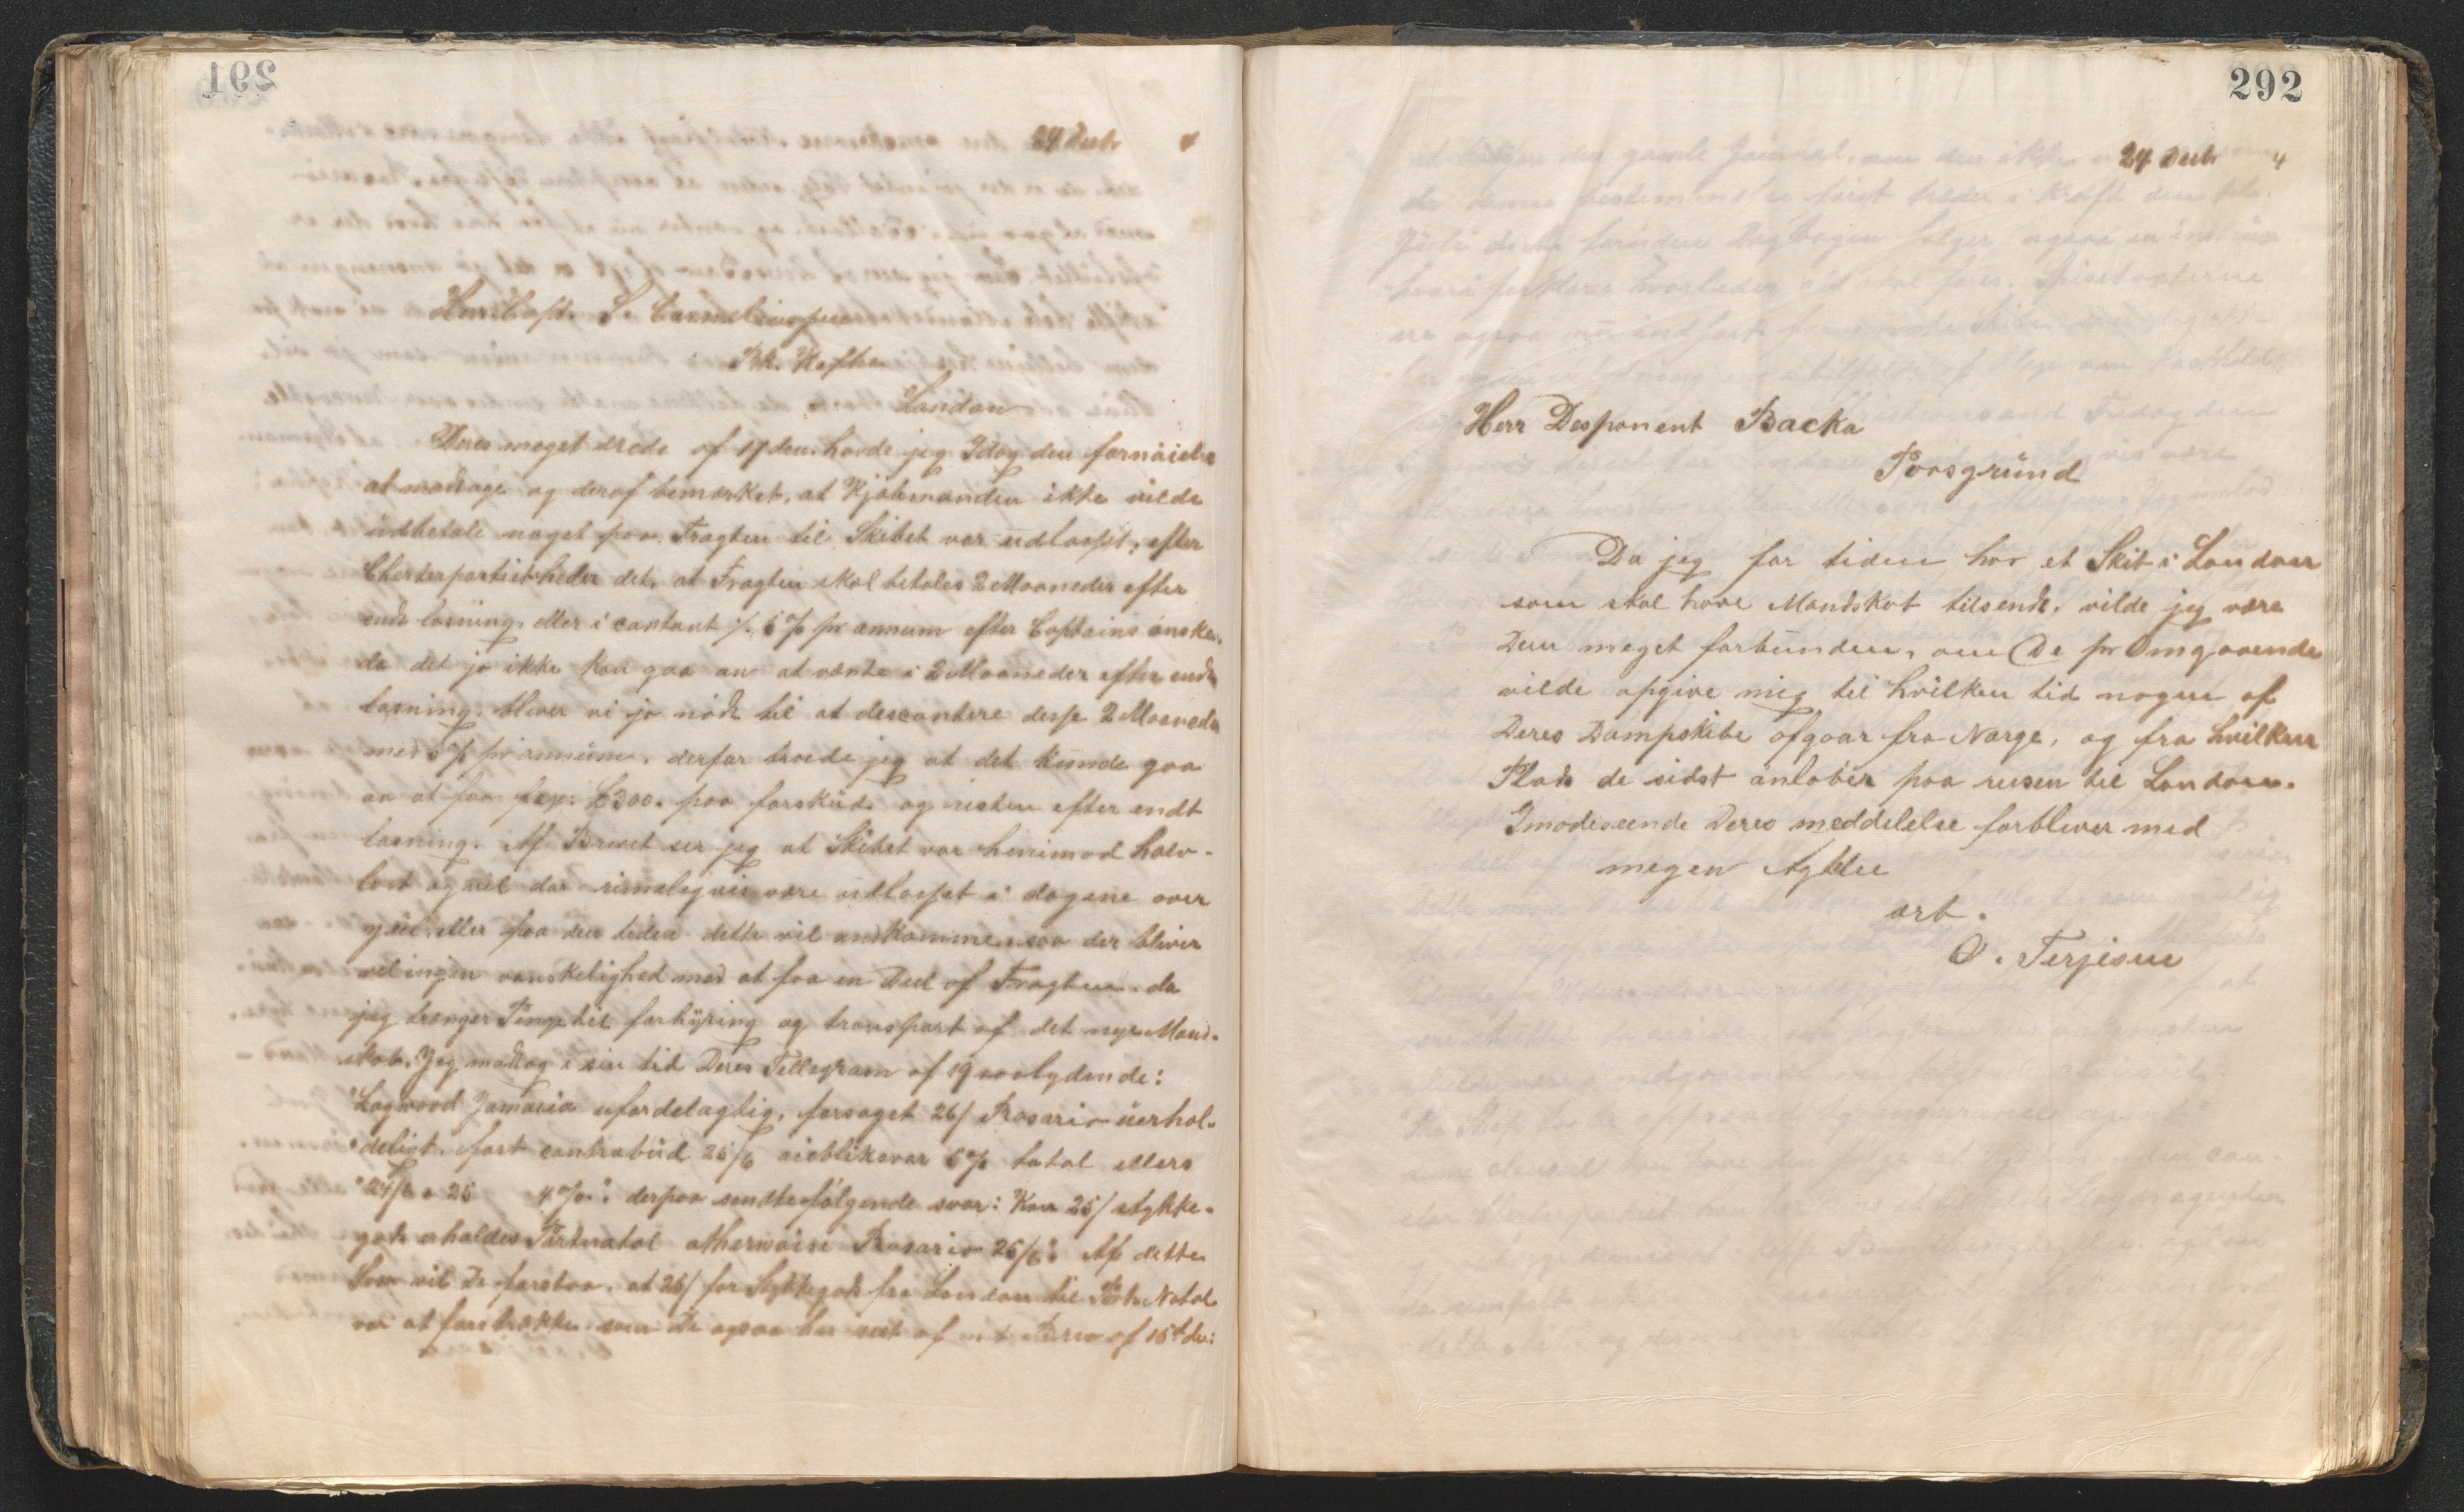 291
24 Decb
Herr Capt. S.
Bk. Hafhea
London
Deres meget ærede af 17 den. havde jeg Idag den fornöielse
at modtage og deraf bemærket, at Kjöbmanden ikke vilde
udbetale noget paa Fragten til Skibet var udlosset, efter
Cherterpartiet heder det, at Fragten skal betales 2 Maaneder efter
endt losning, eller i contant ÷ 5 % pr annum efter Captains önske,
da det jo ikke kan gaa an at vænte i 2 Maaneder efter endt
losning, bliver vi jo nödt til at descontere disse 2 Maaneder
med 5 % pr annum, derfor troede jeg at det kunde gaa
an at faa f.ex. £300. paa forskud. og resten efter endt
losning. Af Brevet ser jeg at Skibet var henimod halv-
lost og vil da rimeligvis være udlosset i dagene over
jul, eller paa den tiden dette vil ankomme, saa der bliver
vel ingen vanskelighed med at faa en Deel af Fragten, da
jeg trænger Penge til forhyring og transport af det nye Mand-
skab. Jeg modtog i sin tid Deres Tellegram af 19 saalydende:
"Logwood Jamaica ufordelagtig, forsöget 26/ Rosario uerhol-
"deligt, fast contrabud 25/6 öieblikssvar 5 % total ellers
"24/6 a 25 4 %": derpaa sendte fölgende svar: Kan 25/ stykke-
gods erholdes Portnatal otherwise Rosario 25/6". Af dette
Svar vil De forstaa, at 26/ for Stykkegods fra London til Port Natal
var at foretrække som De ogsaa har seet af mit Brev af 15 de:
292
24 Decb 4
Herr Desponent Backa
Porsgrund
Da jeg for tiden har et Skib i London
som skal have Mandskab tilsendt, vilde jeg være
Dem meget forbunden, om De pr Omgaaende
vilde opgive mig til hvilken tid nogen af
Deres Dampskibe afgaar fra Norge, og fra hvilken
Plads de sidst anlöber paa reisen til London.
Imödeseende Deres meddelelse forbliver med
megen Agtelse
ærb.
O. Terjesen